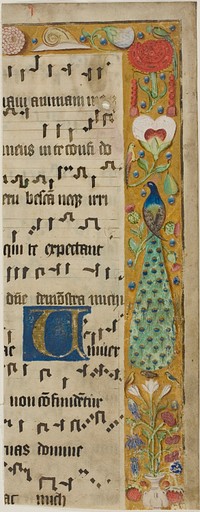 uam animam mea
meus in te confi do
eru besca neqz irri
qui te expectant
dñe demonstra michi
U
ae uniuer
non cõfundẽtur
uias domine
ac mich